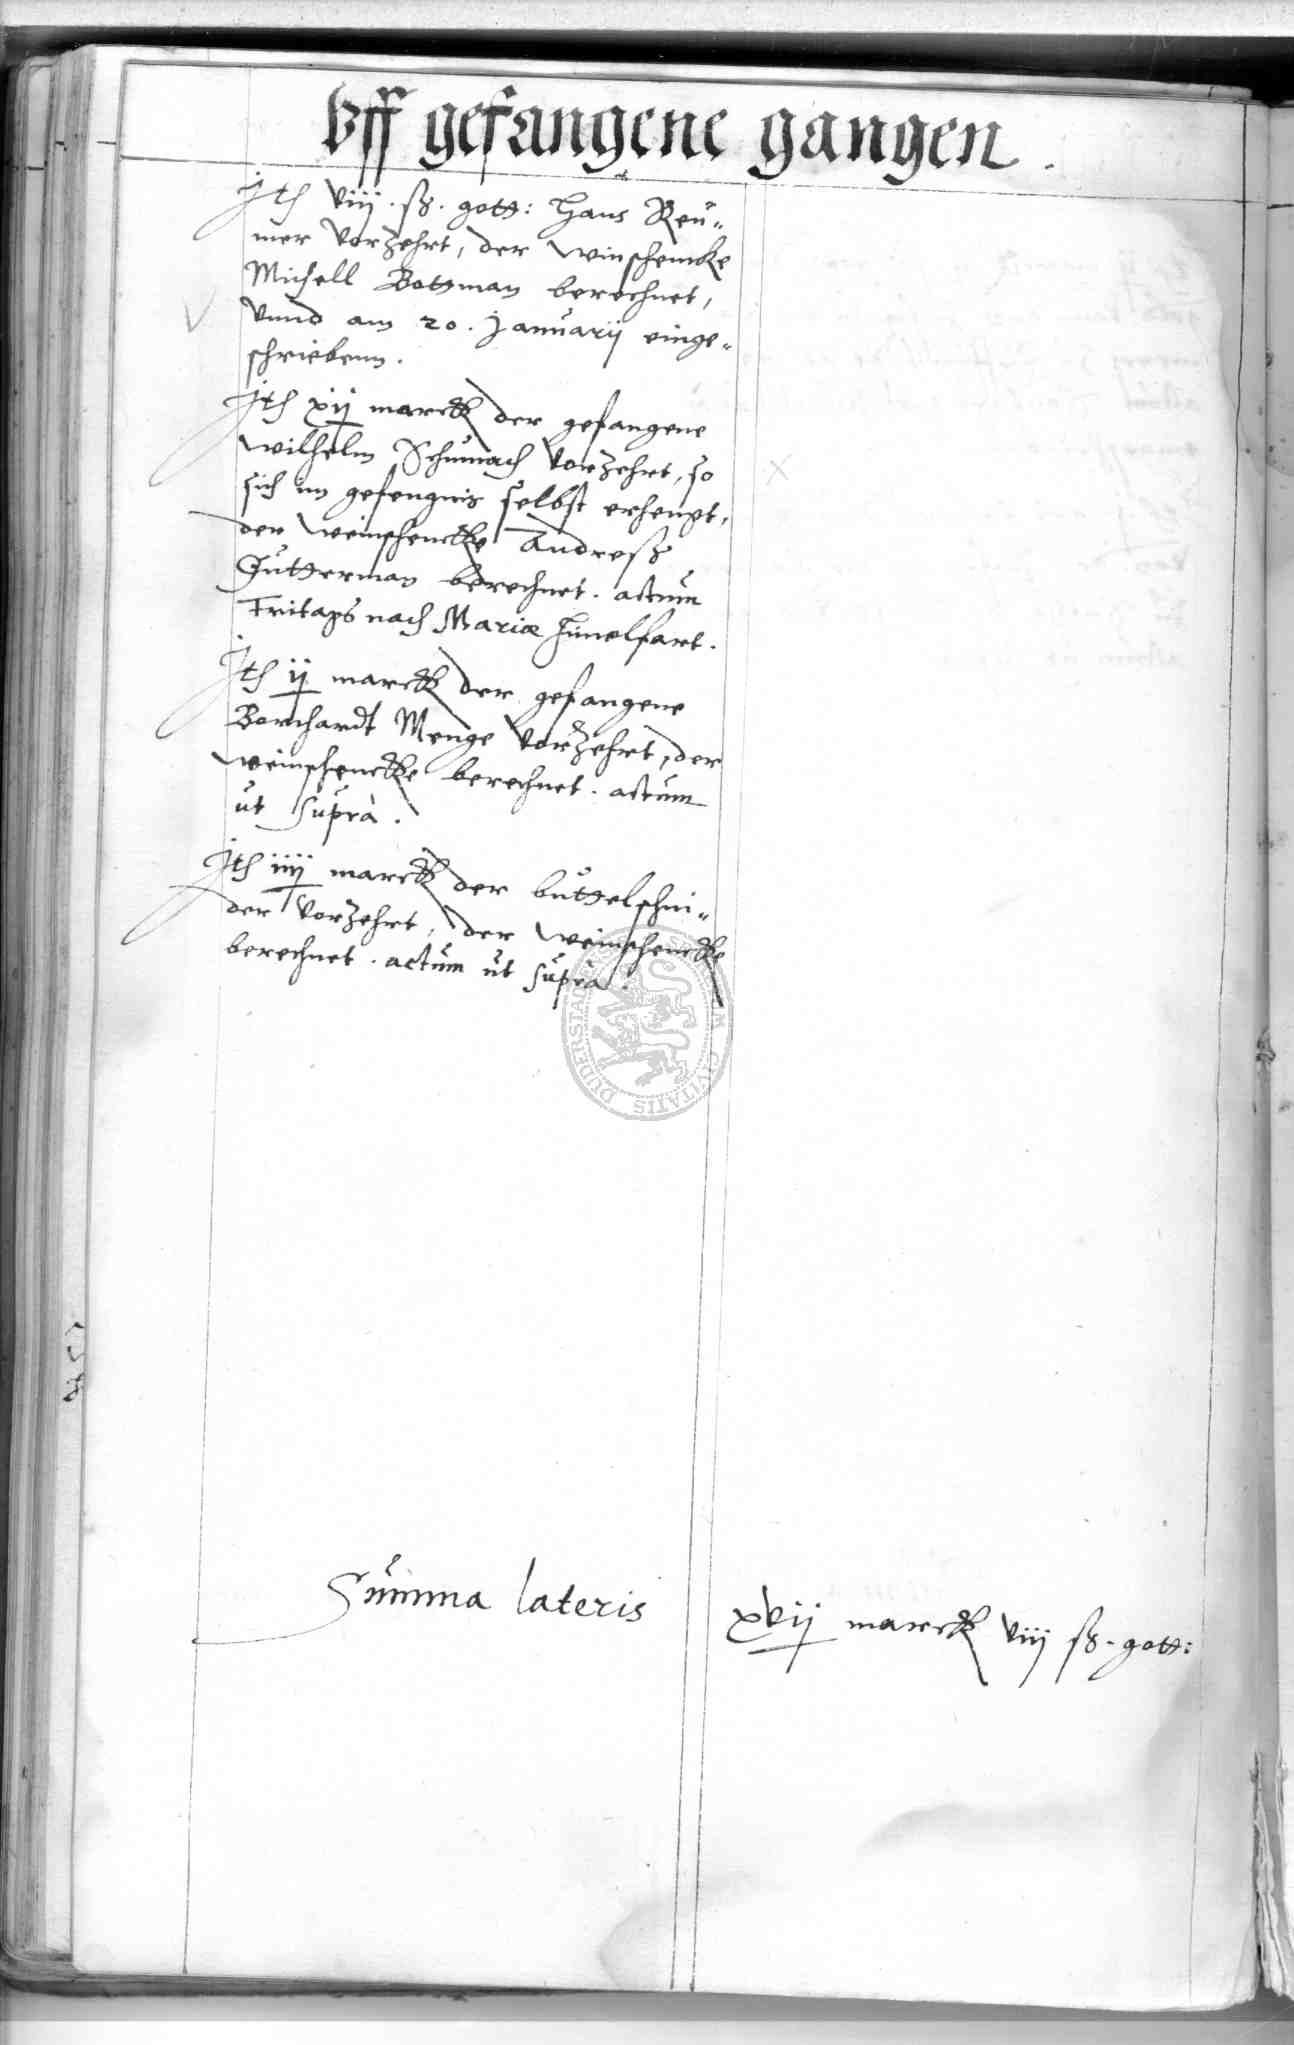 Uff gefangene gangen.
Ith viij. ß. gott: Hans Reu-
mer vorzehrt, der winschencke
Michell Bottman berechnet,
Vnnd am 20. Januarij einge-
schriebenn.
Ith xij marck der gefangene
Wilhelm Schumach vorzehrt, so
sich im gefengnis selbst erhengt,
der weinschencke Andreß
Gutterman berechnet. actum
Fritags nach Mariæ Himelfart.
Ith ij marck der gefangene
Bornhardt Menge vorzehrt, der
weinschencke berechnet. actum
ut supra.
Ith iiij marck der buttelschni-
der vorzehrt, der weinschencke
berechnet. actum ut supra.
Summa lateris xvij marck viij ß. gott:
DUDERSTAD
CIVITATIS